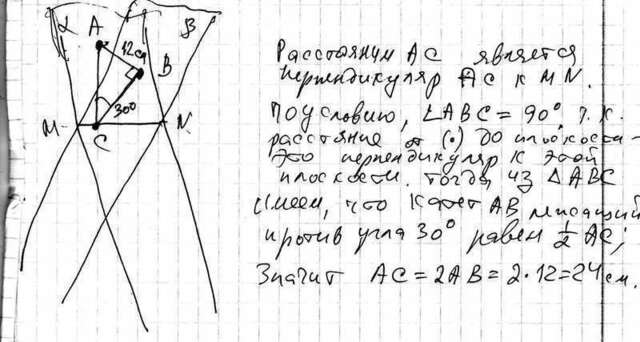 α A B
12см
B
30°
M C N
Расстоянием AC является
перпендикуляр AC к MN.
По условию, ∠ABC = 90°, т.к.
расстояние от (·) до плоскости –
это перпендикуляр к этой
плоскости. Тогда, из △ABC
имеем, что катет AB, лежащий
против угла 30° равен 1/2 AC;
Значит AC = 2AB = 2·12 = 24 см.